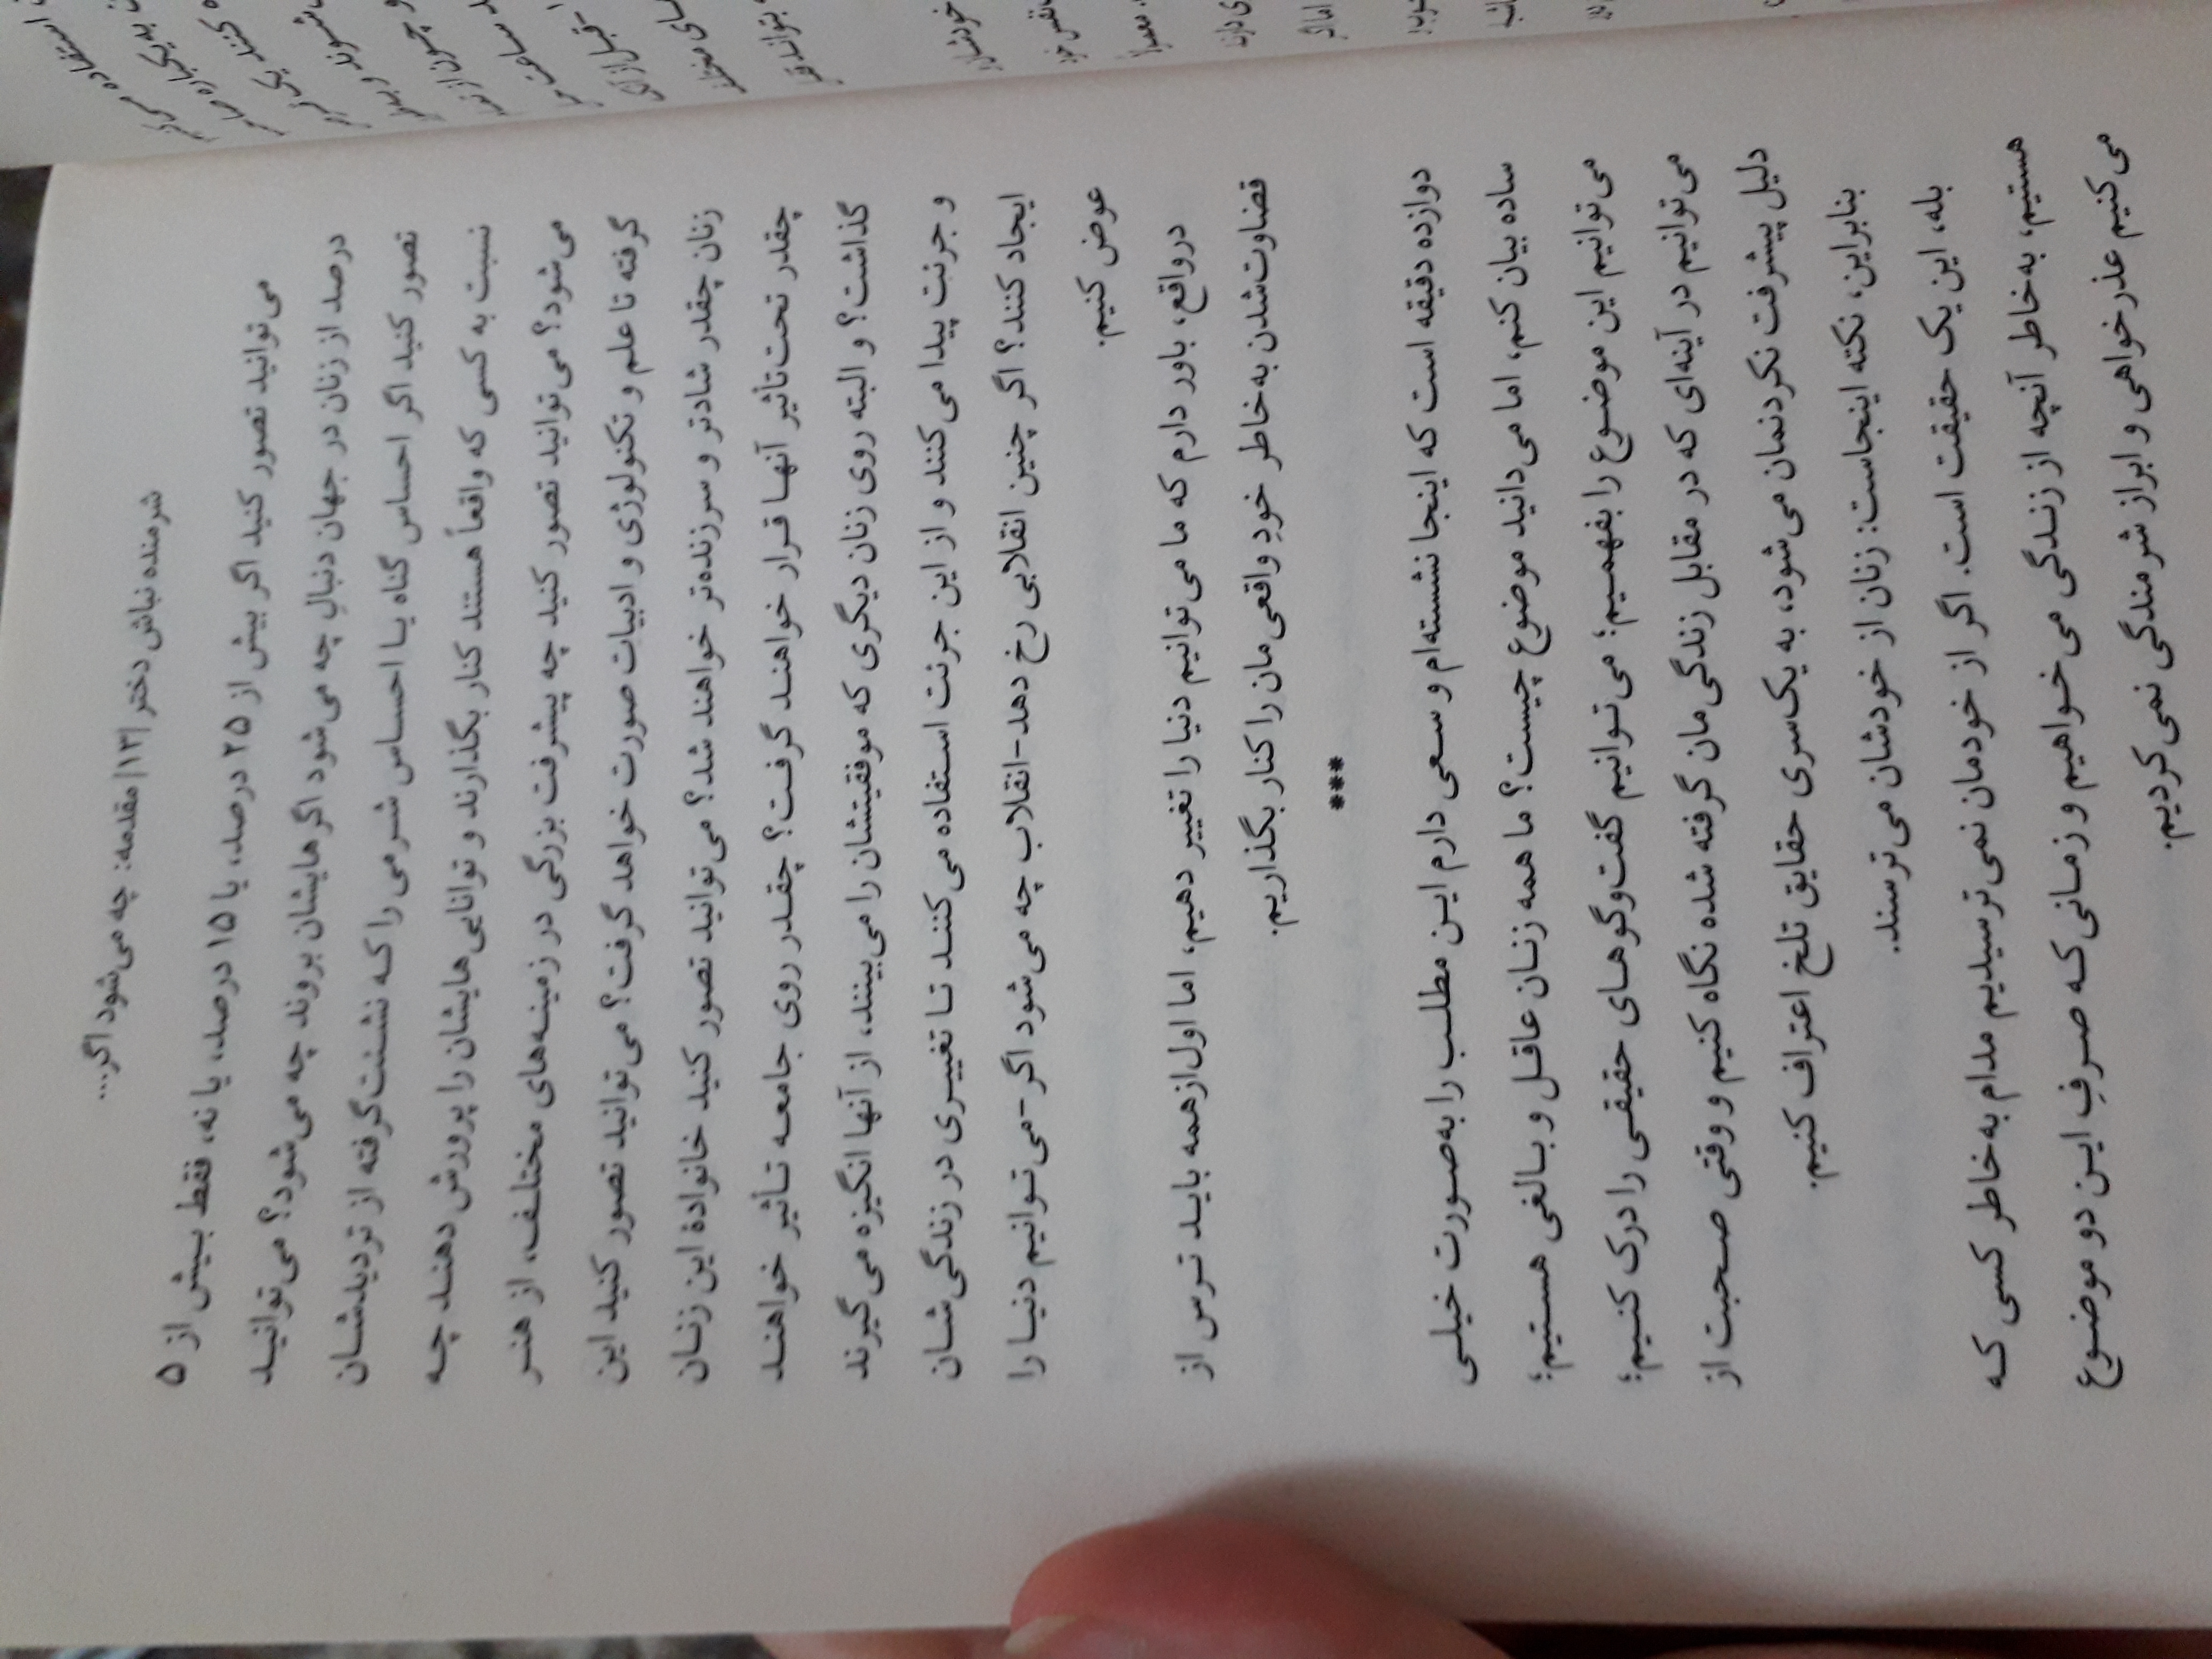 شرمنده نباش دختر |۱۳| مقدمه: چه می‌شود اگر...
می‌توانید تصور کنید اگر بیش از ۲۵ درصد، یا ۱۵ درصد، یا نه، فقط بیش از ۵
درصد از زنان در جهان دنبالِ چه می‌شود اگرهایشان بروند چه می‌شود؟ می‌توانید
تصور کنید اگر احساس گناه یا احساس شرمی را که نشئت‌گرفته از تردیدشان
نسبت به کسی که واقعاً هستند کنار بگذارند و توانایی‌هایشان را پرورش دهند چه
می‌شود؟ می‌توانید تصور کنید چه پیشرفت بزرگی در زمینه‌های مختلف، از هنر
گرفته تا علم و تکنولوژی و ادبیات صورت خواهد گرفت؟ می‌توانید تصور کنید این
زنان چقدر شادتر و سرزنده‌تر خواهند شد؟ می‌توانید تصور کنید خانوادهٔ این زنان
چقدر تحت‌تأثیر آنها قرار خواهند گرفت؟ چقدر روی جامعه تأثیر خواهند
گذاشت؟ و البته روی زنان دیگری که موفقیتشان را می‌بینند، از آنها انگیزه می‌گیرند
و جرئت پیدا می‌کنند و از این جرئت استفاده می‌کنند تا تغییری در زندگی‌شان
ایجاد کنند؟ اگر چنین انقلابی رخ دهد-انقلاب چه می‌شود اگر-می‌توانیم دنیا را
عوض کنیم.
درواقع، باور دارم که ما می‌توانیم دنیا را تغییر دهیم، اما اول‌ازهمه باید ترس از
قضاوت‌شدن به‌خاطر خودِ واقعی‌مان را کنار بگذاریم.
***
دوازده دقیقه است که اینجا نشسته‌ام و سعی دارم این مطلب را به‌صورت خیلی
ساده بیان کنم، اما می‌دانید موضوع چیست؟ ما همه زنان عاقل و بالغی هستیم؛
می‌توانیم این موضوع را بفهمیم؛ می‌توانیم گفت‌وگوهای حقیقی را درک کنیم؛
می‌توانیم در آینه‌ای که در مقابل زندگی‌مان گرفته شده نگاه کنیم و وقتی صحبت از
دلیل پیشرفت نکردنمان می‌شود، به یک‌سری حقایق تلخ اعتراف کنیم.
بنابراین، نکته اینجاست: زنان از خودشان می‌ترسند.
بله، این یک حقیقت است. اگر از خودمان نمی‌ترسیدیم مدام به‌خاطر کسی که
هستیم، به‌خاطر آنچه از زندگی می‌خواهیم و زمانی که صرفِ این دو موضوع
می‌کنیم عذرخواهی و ابراز شرمندگی نمی‌کردیم.